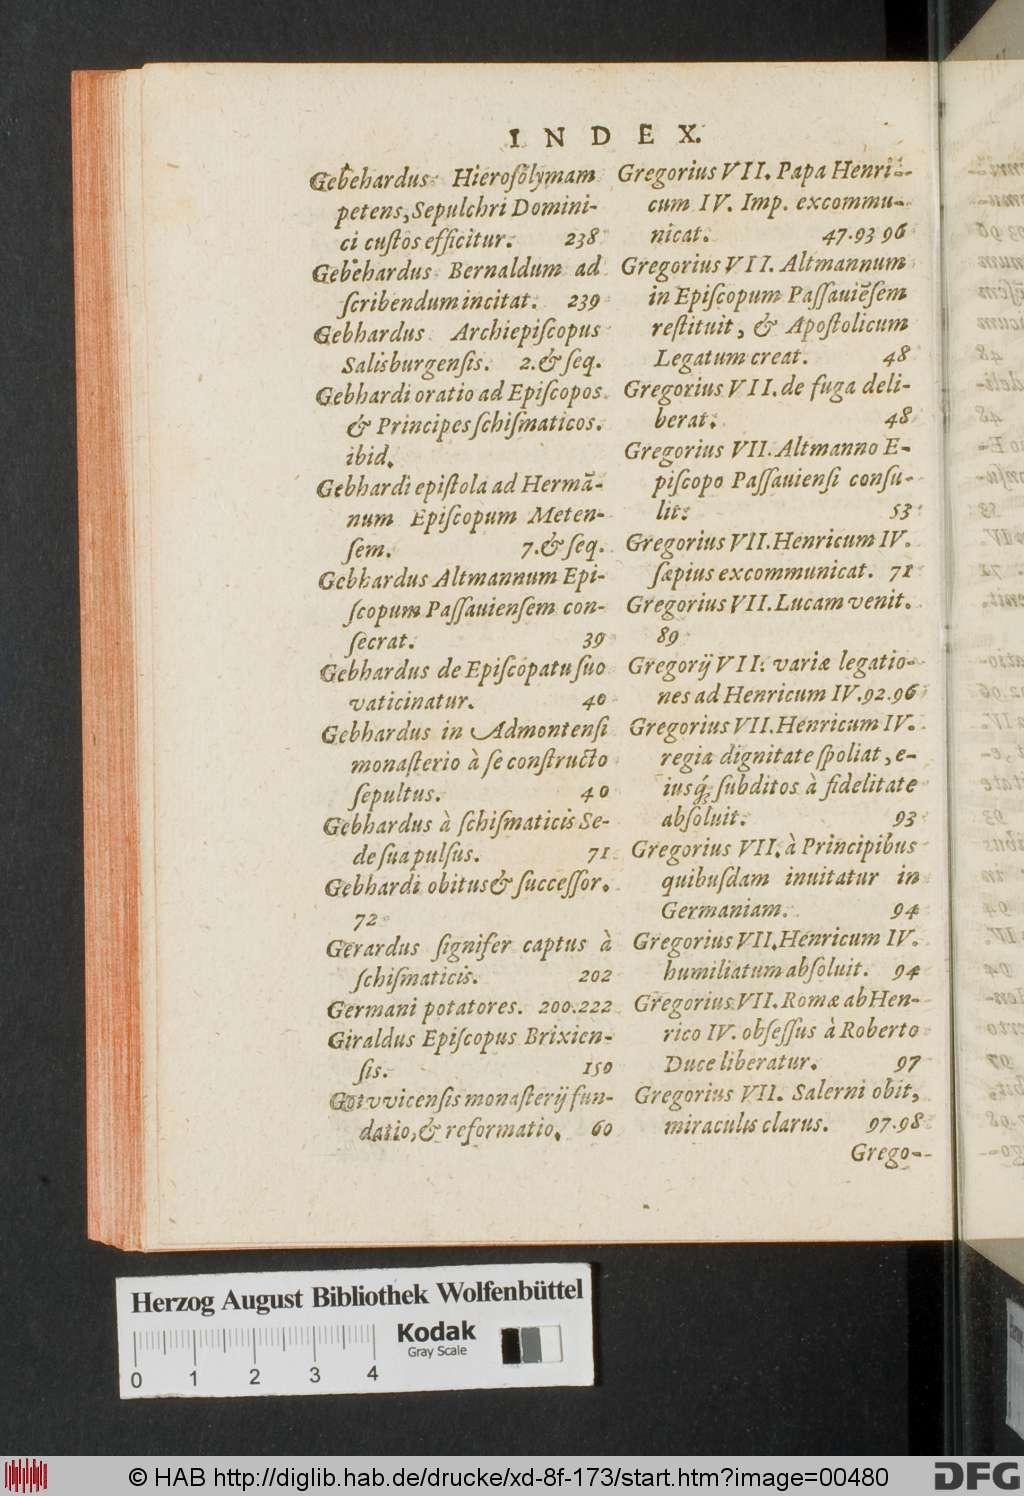 INDEX.
Gebehardus Hieroſolymam
petens, Sepulchri Domini-
ci cuſtos efficitur. 238
Gebehardus Bernaldum ad
ſcribendum incitat. 239
Gebhardus Archiepiſcopus
Salisburgenſis. 2. & ſeq.
Gebhardi oratio ad Epiſcopos
& Principes ſchiſmaticos.
ibid.
Gebhardi epiſtola ad Hermã-
num Epiſcopum Meten-
ſem. 7. & ſeq.
Gebhardus Altmannum Epi-
ſcopum Paſſauienſem con-
ſecrat. 39
Gebhardus de Epiſcopatu ſuo
vaticinatur. 40
Gebhardus in Admontenſi
monaſterio à ſe conſtructo
ſepultus. 40
Gebhardus à ſchiſmaticis Se-
de ſua pulſus. 71
Gebhardi obitus & ſucceſſor.
72
Gerardus ſignifer captus à
ſchiſmaticis. 202
Germani potatores. 200.222
Giraldus Epiſcopus Brixien-
ſis. 150
Gotvvicenſis monaſterij fun-
datio, & reformatio. 60
Gregorius VII. Papa Henri-
cum IV. Imp. excommu-
nicat. 47.93 96
Gregorius VII. Altmannum
in Epiſcopum Paſſauiẽſem
reſtituit, & Apoſtolicum
Legatum creat. 48
Gregorius VII. de fuga deli-
berat. 48
Gregorius VII. Altmanno E-
piſcopo Paſſauienſi conſu-
lit. 53
Gregorius VII. Henricum IV.
ſæpius excommunicat. 71
Gregorius VII. Lucam venit.
89
Gregorij VII. variæ legatio-
nes ad Henricum IV. 92.96
Gregorius VII. Henricum IV.
regia dignitate ſpoliat, e-
iusq́; ſubditos à fidelitate
abſoluit. 93
Gregorius VII. à Principibus
quibuſdam inuitatur in
Germaniam. 94
Gregorius VII. Henricum IV.
humiliatum abſoluit. 94
Gregorius VII. Romæ ab Hen-
rico IV. obſeſſus à Roberto
Duce liberatur. 97
Gregorius VII. Salerni obit,
miraculis clarus. 97.98
Grego-
Herzog August Bibliothek Wolfenbüttel
Kodak
Gray Scale
0 1 2 3 4
© HAB http://diglib.hab.de/drucke/xd-8f-173/start.htm?image=00480
DFG